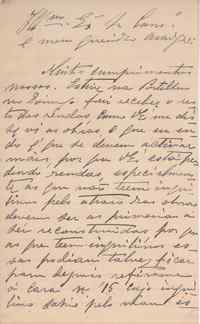 Illmo. Exo. Sr. Cons.
e meu querido amigo
Muitos cumprimentos
nossos. Estive na
no Domingo fui receber o res
to das rendas, como VE me dis
se vi as obras. E que eu en
do é que se devem activar
mais por que VE está per
dendo rendas, especialmen
te as que não teem inqui
linos pelo atraso das obras
devem ser as primeiras a
ser reconstruidas por que
as que teem inquilinos es
sas podiam talvez ficar
para depois refiro-me
á casa Nº 15 cujo inqui
lino